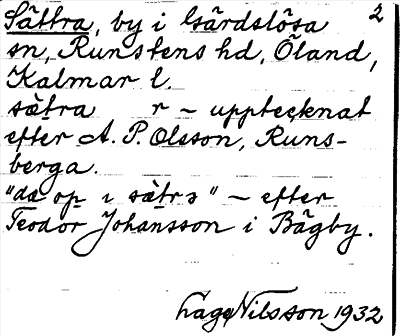 Sättra, by i Gärdslösa 2
sn, Runstens hd, Öland,
Kalmar l.
sätra r ~ upptecknat
efter A. P. Olsson, Runs-
berga.
"dä op i sätrə" ~ efter
Teodor Johansson i Bägby.
Lage Nilsson 1932